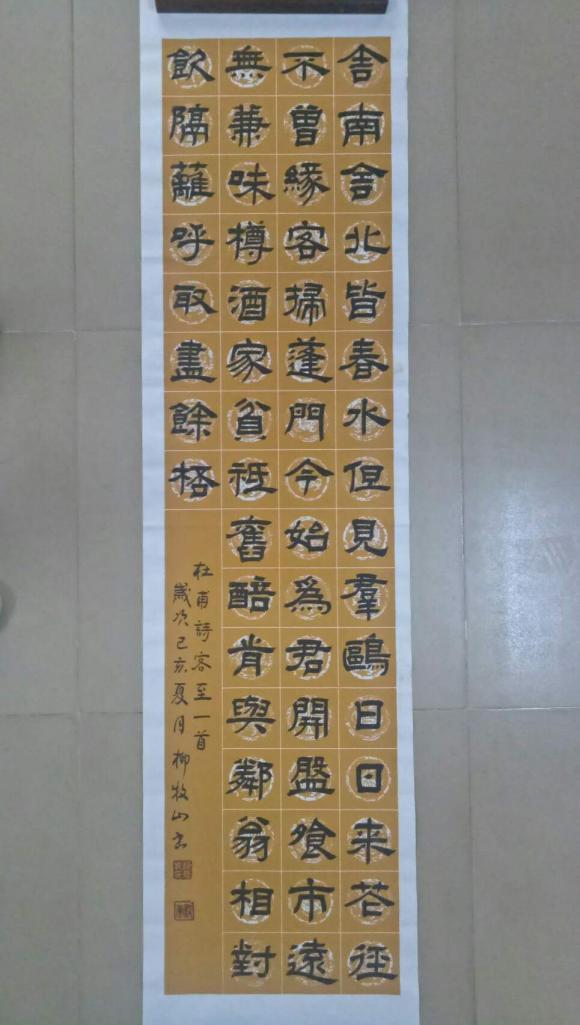 舍南舍北皆春水但見羣鷗日日来花径
不曾緣客掃蓬門今始爲君開盤飧市遠
無兼味樽酒家貧祗舊醅肯與鄰翁相對
飲隔蘺呼取盡餘桮
杜甫詩客至一首
歲次己亥夏月柳牧山书